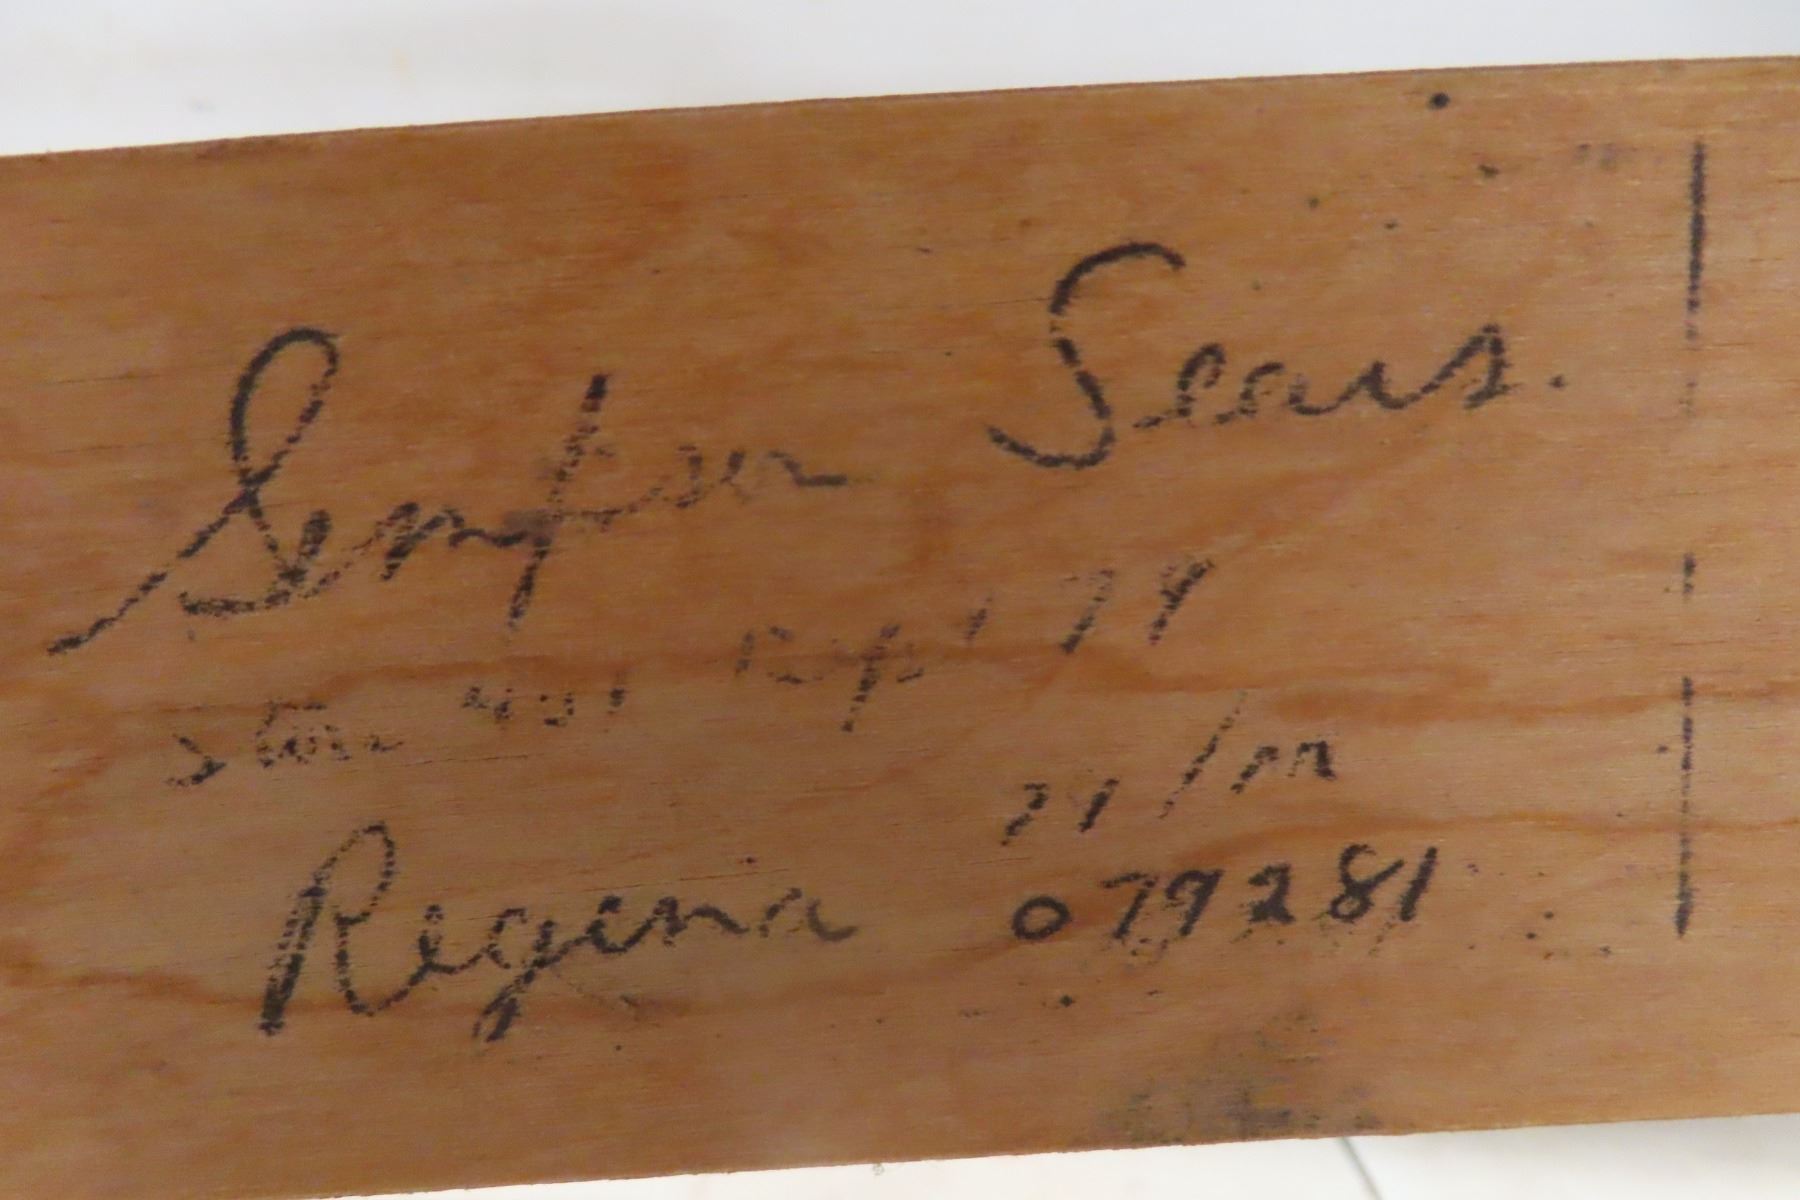 Simpson Sears.
Store Dept 79
/m
Regina 079281